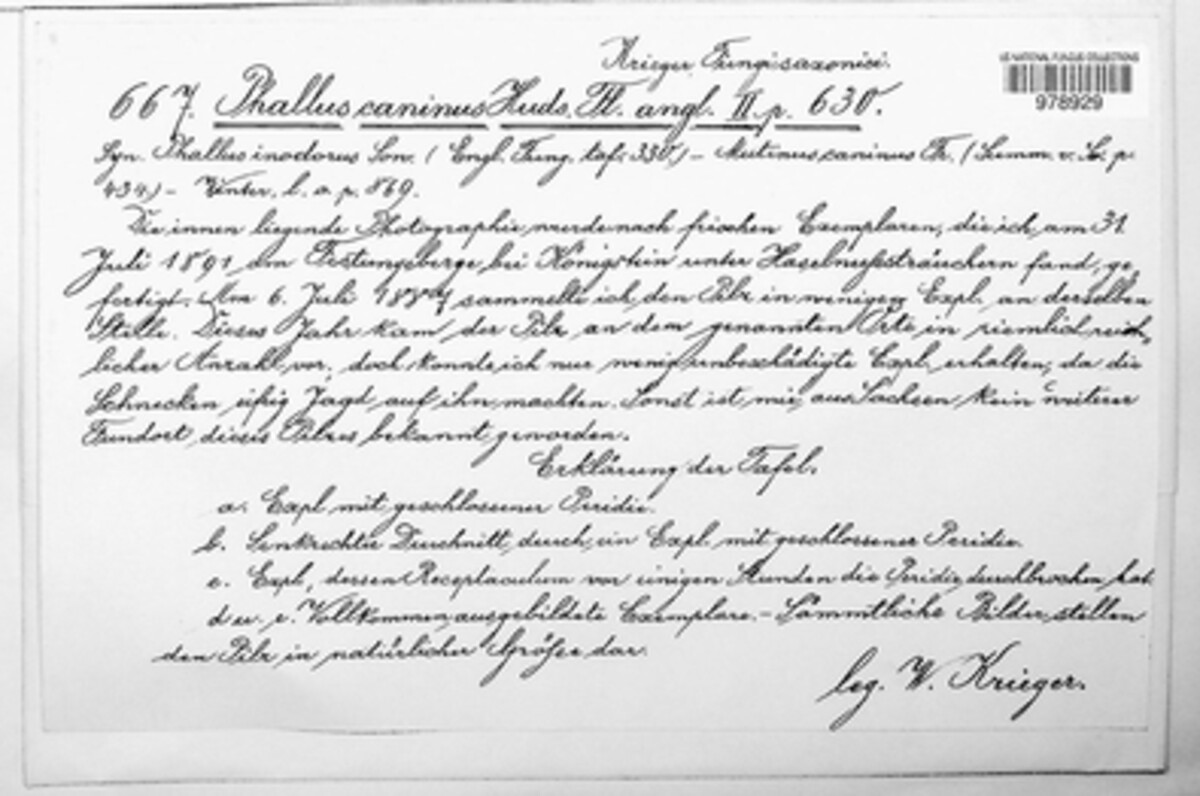 Krieger, Fungi saxonici.
US NATIONAL FUNGUS COLLECTIONS
978929
667. Phallus caninus Huds. Fl. angl. II p. 630.
Syn. Phallus inodorus Sow. (Engl. Fung. taf. 330.) – Mutinus caninus Fr. (Summ. v. Sc. p.
434.) – Winter, l. c. p. 869.
Die innen liegende Photographie wurde nach frischen Exemplaren, die ich am 31
Juli 1891 am Festungsberge bei Königstein unter Haselnußsträuchern fand, ge-
fertigt. Am 6. Juli sammelte ich den Pilz in wenigen Expl. an derselben
Stelle. Dieses Jahr kam der Pilz an dem genannten Orte in ziemlich reich-
licher Anzahl vor, doch konnte ich nur wenig unbeschädigte Expl. erhalten, da die
Schnecken eifrig Jagd auf ihn machten. Sonst ist mir aus Sachsen kein weiterer
Fundort dieses Pilzes bekannt geworden.
Erklärung der Tafel.
a. Expl. mit geschlossener Peridie.
b. Senkrechter Durchnitt durch ein Expl. mit geschlossener Peridie.
c. Expl., dessen Receptaculum vor einigen Stunden die Peridie durchbrochen hat.
d u. e. Vollkommen ausgebildete Exemplare. – Sämmtliche Bilder stellen
den Pilz in natürlicher Größe dar.
leg. W. Krieger.